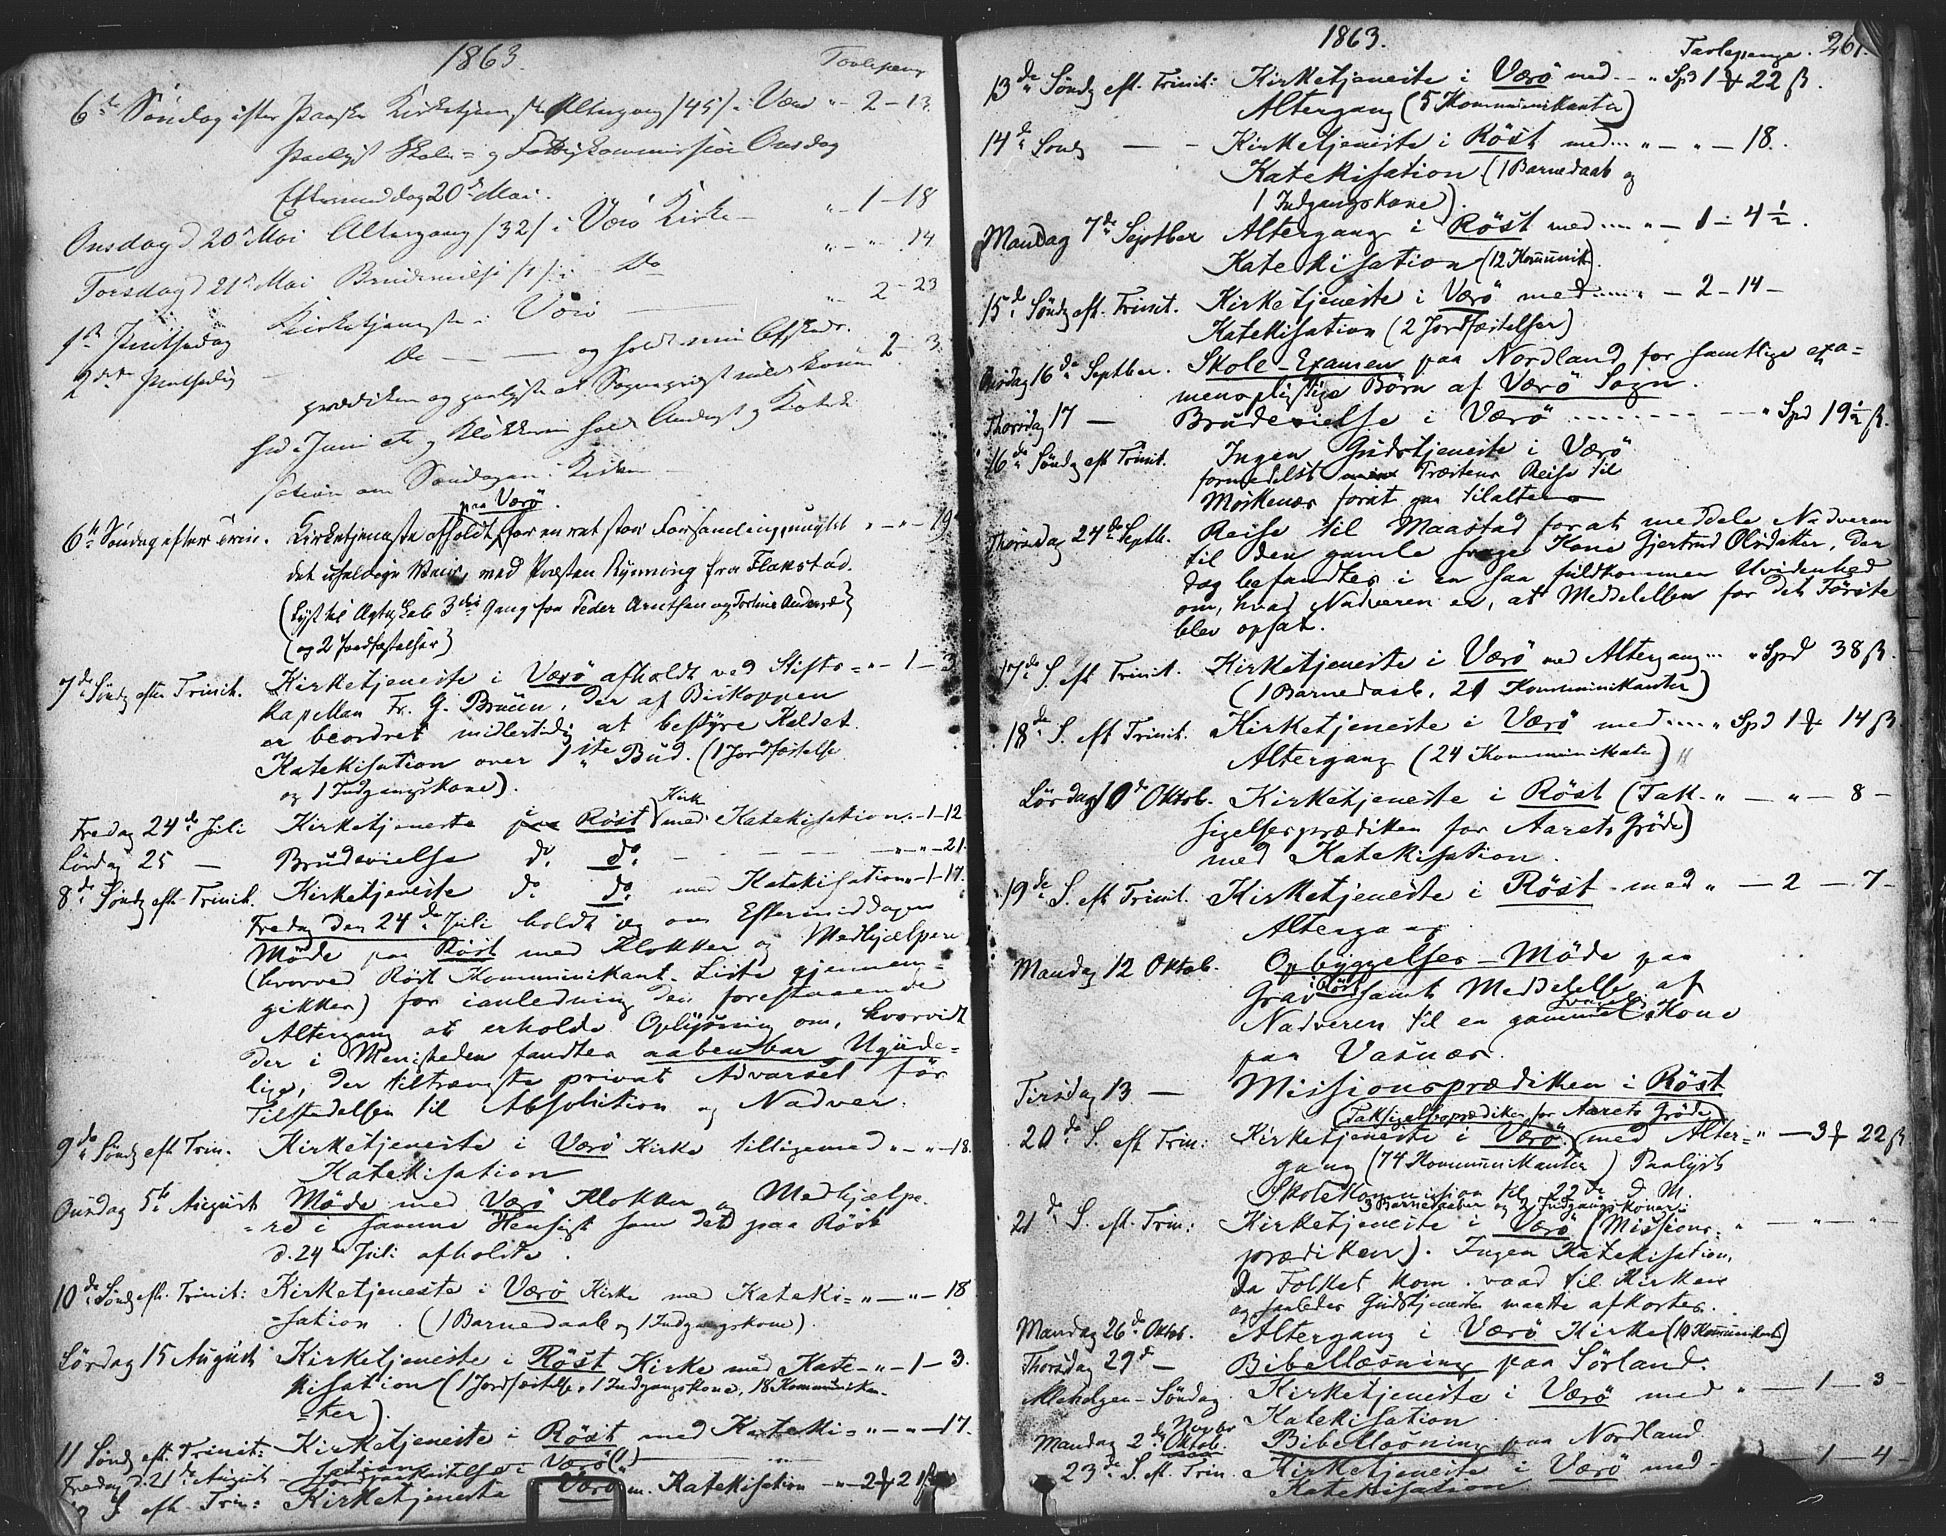 1863.
Tavlepeng
6te Søndag efter Paaske Kirketjeneste Altergang /45/ i Værø " - 2 - 13
Paalyst Skole= og Fattigkommission Onsdag
Eftermiddag 20de Mai.
Onsdag d 20de Mai Altergang /32/ i Værø Kirke - " - 1 - 18
Torsdag d 21de Mai Brudevielse /1/ i Do " - " - 14
1ste Pintsedag Kirketjeneste i Værø " - 2 - 23
2den Pintsedag Do og holdt min Afskeds- 2 - 3
prædiken og paalyste at Sognepræst
hid i Juni og Klokkeren holde Andagt og Kateki
sation om Søndagen i Kirken
paa Værø
6te Søndag efter Trin. Kirketjeneste afholdt for en ret stor Forsamling " - " - 19
det ufuldige Veir, med Præsten Rynning fra Flakstad.
(Lyst til Ægteskab 3die Gang for Peder Arntsen og
(og 2 Jordfæstelser)
7de Søndg efter Trinit. Kirketjeneste i Værø afholdt ved Stifts= " - 1 - 3
Kapellan Fr. G. Bruun, der af Biskoppen
er beordret midlertidig at bestyre Kaldet.
Katekisation over 1ste Bud. (1 Jordfæstelse
og 1 Indgangskone).
Fredag 24de Juli Kirketjeneste i Røst Kirk med Katekisation. " - 1 - 12
Lørdag 25 — Brudevielse do. do. - - - " - " - 21.
8de Søndg eft. Trinit. Kirketjeneste do do. med Katekisation " - 1 - 17.
Fredag den 24de Juli holdt jeg om Eftermiddagen
Møde paa Røst med Klokker og Medhjælpere
(hvorved Røst Kommunikant-Liste gjennem-
gikkes) for i anledning den forestaaende
Altergang at erholde Oplysning om, hvorvidt
der i Menigheden fandtes aabenbar Ugude=
lige, der tiltrængte privat Advarsel før
Tilstedelsen til Absolution og Nadver.
9de Søndg eft Trin. Kirketjeneste i Værø Kirke tilligemed " - " - 18.
Katekisation
Onsdag 5te August Møde med Værø Klokker og Medhjælpe-
=re i samme Hensigt som det paa Røst
d. 24de Juli afholdte.
10de Søndg eft. Trinit: Kirketjeneste i Værø Kirke med Kateki= " - " - 18
=sation. (1 Barnedaab og 1 Indgangskone).
Lørdag 15 August Kirketjeneste i Røst Kirke med Kate- " - 1 - 3.
kisation (1 Jordfæstelse, 1 Indgangskone, 18 Kommunikan-
=ter).
11 Søndg eft. Trinit: Kirketjeneste i Røst med Kateki= " - " - 17.
sation
Fredag d. 21de August - Jordpaakastelse i Værø (1)
12 S. eft. Trin: Kirketjeneste i Værø m. Katekisation - " - 2 21 ß
1863.
Tavlepenge. 261.
13de Søndg eft. Trinit: Kirketjeneste i Værø med - " Spd 1 22 ß.
Altergang (5 Kommunikanter)
14de Søndg — - Kirketjeneste i Røst med... " - " - 18.
Katekisation (1 Barnedaab og
1 Indgangskone).
Mandag 7de Septber Altergang i Røst med.... " - 1 - 4 1/2.
Katekisation (12 Kommunik).
15de Søndg eft. Trinit. Kirketjeneste i Værø med..... - 2 - 14 -
Katekisation (2 Jordfæstelser)
Onsdag 16de Septber. Skole-Examen paa Nordland for samtlige exa=
menspligtige Børn af Værø Sogn.
Thorsdag 17 — Brudevielse i Værø ........ " Spd 19 1/2 ß.
16de Søndg eft Trinit. Ingen Gudstjeneste i Værø
formedelst Præstens Reise til
Moskenæs forat gaa tilalters
Thorsdag 24de Septb. Reise til Maastad forat meddele Nadveren
til den gamle svage Kone Gjertrud Olsdatter, der
dog befandtes i en saa fuldkommen Uvidenhed
om, hvad Nadveren er, at Meddelelsen for det Første
blev opsat.
17de S. eft Trinit. Kirketjeneste i Værø med Altergang... " Spd 38 ß.
(1 Barnedaab, 21 Kommunikanter)
18de S. eft Trinit. Kirketjeneste i Værø med.... " Spd 1 14 ß
Altergang (24 Kommunikanter)
Lørdag 10de Oktob. Kirketjeneste i Røst (Tak- " - " - 8 -
sigelsesprædiken for Aarets Grøde)
med Katekisation.
19de S. eft Trinit. Kirketjeneste i Røst med " - 2 - 7 -
Altergang
Mandag 12 Oktob. Opbyggelses-Møde paa
Grav i Røst samt Meddelelse af
Nadveren til en gammel svag Kone
paa Vasnæs.
Tirsdag 13 — Missionsprædiken i Røst
(Taksigelsesprædiken for Aarets Grøde)
20de S. eft Trin: Kirketjeneste i Værø. med Alter= " - 3 22 ß
gang (74 Kommunikanter) Paalyst
Skolekommission til 22de d. M.
3 Barnedaaber og 2 Indgangskoner:
21de S. eft. Trin: Kirketjeneste i Værø (Missions- " - " - "
prædiken). Ingen Katekisation,
da Folket kom vaad til Kirken
og saaledes Gudstjenesten maatte afkortes.
Mandag 26de Oktob. Altergang i Værø Kirke (10 Kommunikanter)
Thorsdag 29de — Bibellæsning paa Sørland.
Allehelgen-Søndag Kirketjeneste i Værø med " - 1 - 3 -
Katekisation.
Novbr
Mandag 2de Oktob. Bibellæsning paa Nordland
23de S. eft. Trin. Kirketjeneste i Værø med - 1 - 4 -
Katekisation